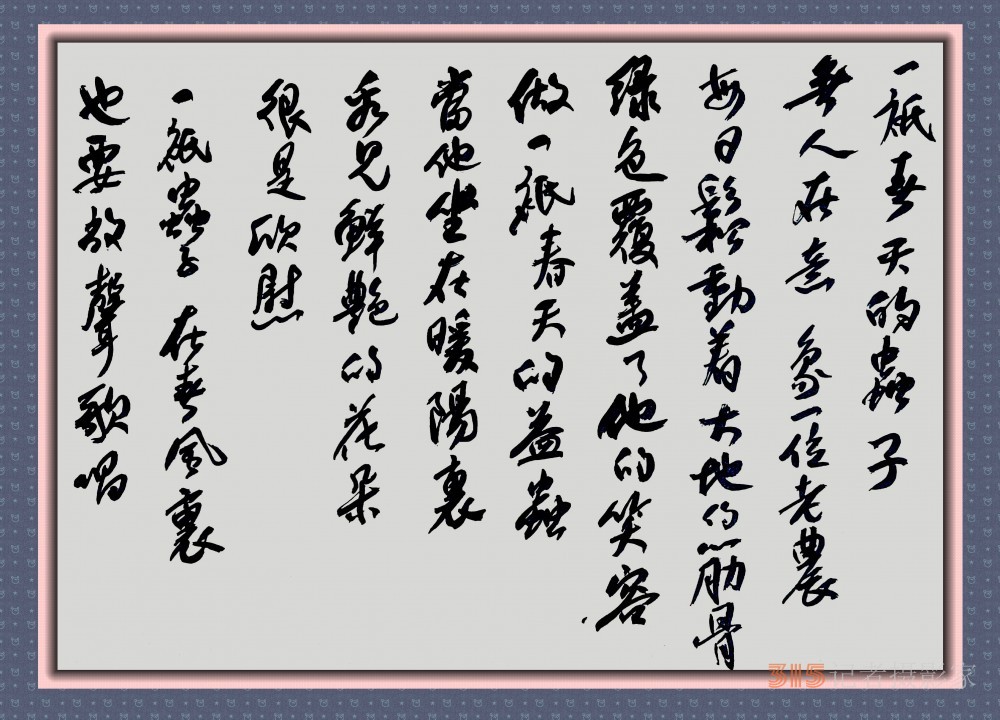 一祇春天的蟲子
無人在意 象一位老農
每日鬆動着大地的筋骨
綠色覆蓋了他的笑容
做一祇春天的益蟲
當他坐在暖陽裏
看見鮮艷的花朵
很是欣慰
一祇蟲子 在春風裏
也要放聲歌唱
315记者摄影家